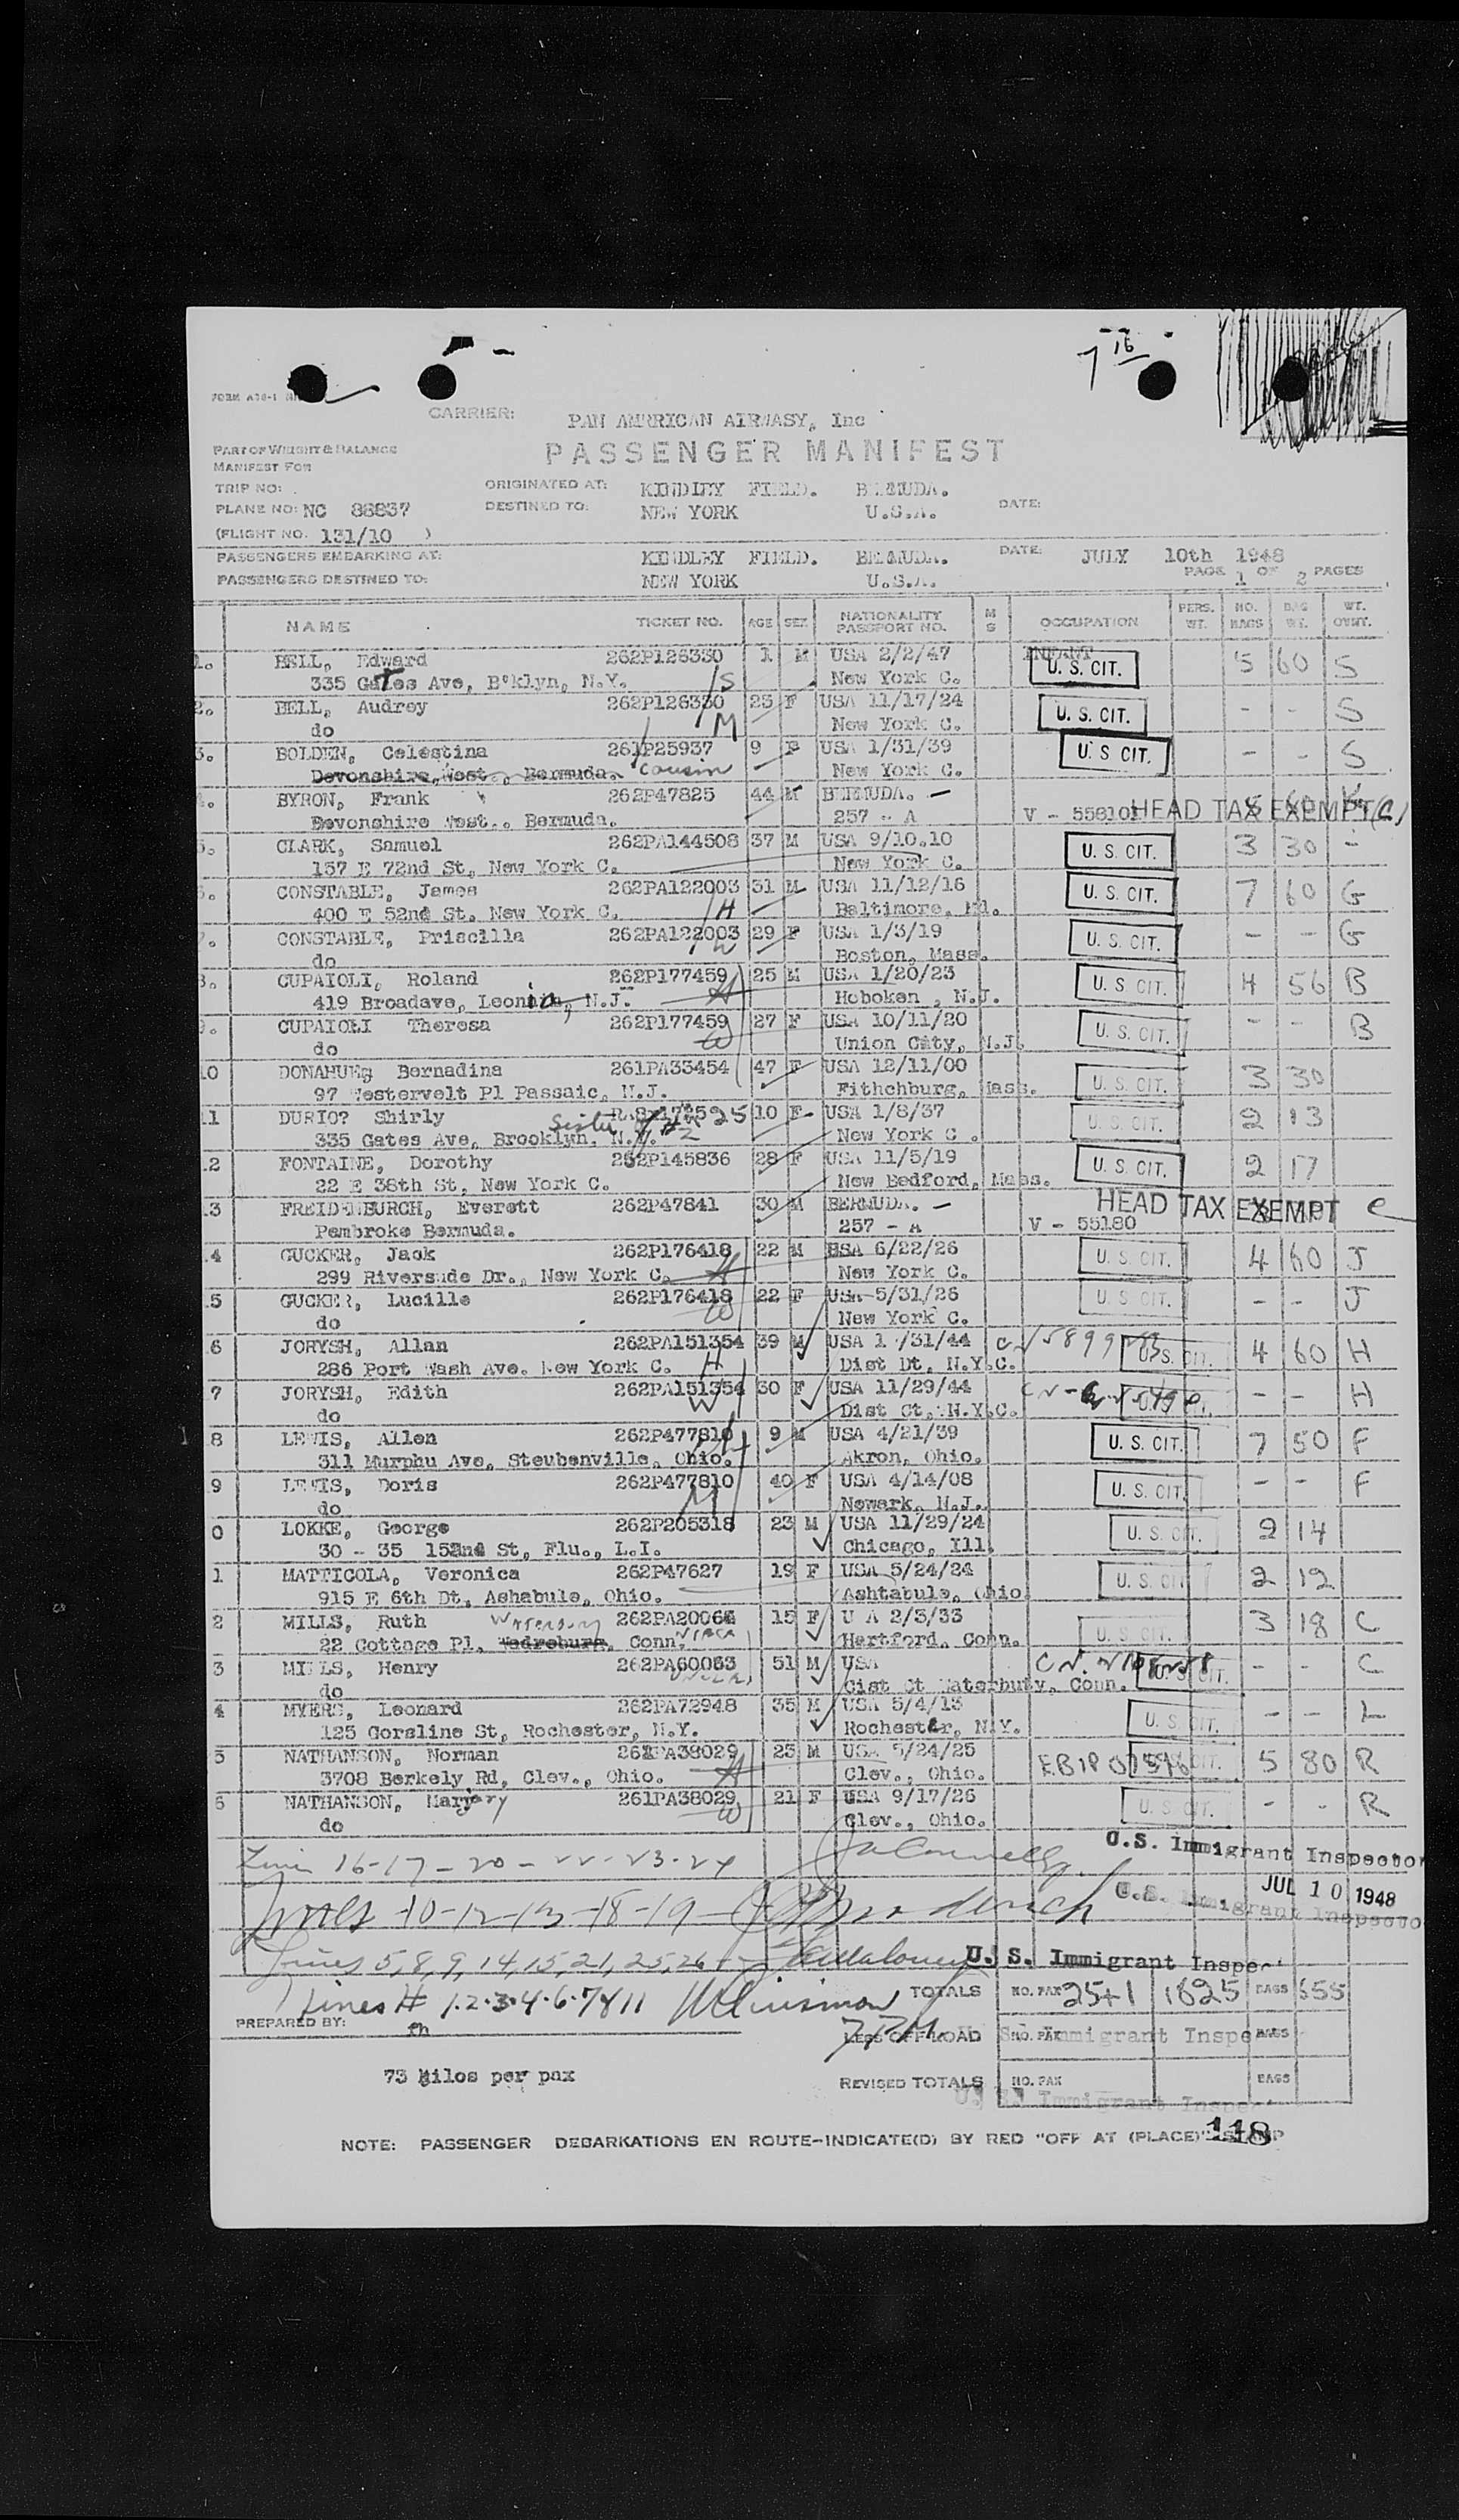 7 16
FORM A30-1
CARRIER: PAN AMRRICAN AIRWASY, Inc
PASSENGER MANIFEST
PART OF WEIGHT & BALANCE
MANIFEST FOR
TRIP NO:
ORIGINATED AT: KINDLEY FIELD. BERMUDA.
PLANE NO: NC 88837 DESTINED TO: NEW YORK U.S.A. DATE:
(FLIGHT NO. 131/10 )
PASSENGERS EMBARKING AT: KINDLEY FIELD. BERMUDA. DATE: JULY 10th 1948
PASSENGERS DESTINED TO: NEW YORK U.S.A. PAGE 1 OF 2 PAGES
NAME TICKET NO. AGE SEX NATIONALITY PASSPORT NO. M S OCCUPATION PERS. WT. NO. BAGS BAG WT. WT. OVWT.
1. BELL, Edward 262P126330 1 M USA 2/2/47 INFANT U. S. CIT. 5 60 S
335 Gates Ave, B'klyn, N.Y. S New York C.
2. BELL, Audrey 262P126330 23 F USA 11/17/24 U. S. CIT. - - S
do M New York C.
3. BOLDEN, Celestina 261P25937 9 F USA 1/31/39 U S CIT. - - S
Devonshire, West., Bermuda. cousin New York C.
4. BYRON, Frank 262P47825 44 M BERMUDA. -
Devonshire West., Bermuda. 257 - A V - 558101 HEAD TAX EXEMPT (C)
5. CLARK, Samuel 262PA144508 37 M USA 9/10.10 U. S. CIT. 3 30 -
157 E 72nd St, New York C. New York C.
6. CONSTABLE, James 262PA122003 31 M USA 11/12/16 U. S. CIT. 7 60 G
400 E 52nd St. New York C. H Baltimore, Md.
7. CONSTABLE, Priscilla 262PA122003 29 F USA 1/3/19 U. S. CIT. - - G
do W Boston, Mass.
8. CUPAIOLI, Roland 262P177459 25 M USA 1/20/23 U. S CIT. 4 56 B
419 Broadave, Leonia, N.J. H Hoboken , N.J.
9. CUPAIOLI Theresa 262P177459 27 F USA 10/11/20 U. S. CIT. - - B
do W Union City, N.J.
10 DONAHUE, Bernadina 261PA33454 47 F USA 12/11/00 U. S. CIT. 3 30
97 Westervelt Pl Passaic, N.J. Fithchburg, Mass.
11 DURIO? Shirly 25 10 F USA 1/8/37 U. S. CIT. 2 13
335 Gates Ave, Brooklyn, N.Y. Sister of #2 New York C .
12 FONTAINE, Dorothy 262P145836 28 F USA 11/5/19 U. S. CIT. 2 17
22 E 38th St, New York C. New Bedford, Mass.
13 FREIDENBURCH, Everett 262P47841 30 M BERMUDA. - HEAD TAX EXEMPT C
Pembroke Bermuda. 257 - A V - 55180
14 GUCKER, Jack 262P176418 22 M USA 6/22/26 U. S. CIT. 4 60 J
299 Riversude Dr., New York C. H New York C.
15 GUCKER, Lucille 262P176418 22 F USA 5/31/26 U. S. CIT. - - J
do W New York C.
16 JORYSH, Allan 262PA151354 39 M USA 1 /31/44 U. S. CIT. 4 60 H
286 Port Wash Ave. New York C. H Dist Dt, N.Y.C.
17 JORYSH, Edith 262PA151354 30 F USA 11/29/44 - - H
do W Dist Ct. N.Y.C.
18 LEWIS, Allen 262P477810 9 M USA 4/21/39 U. S. CIT. 7 50 F
311 Murphu Ave, Steubenville, Ohio. Akron, Ohio.
19 LEWIS, Doris 262P477810 40 F USA 4/14/08 U. S. CIT. - - F
do M Newark, N.J.
20 LOKKE, George 262P205318 23 M USA 11/29/24 U. S. CIT. 2 14
30 - 35 152nd St, Flu., L.I. Chicago, Ill.
21 MATTICOLA, Veronica 262P47627 19 F USA 5/24/24 U. S. CIT 2 12
915 E 6th Dt, Ashabule, Ohio. Ashtabule, Ohio
22 MILLS, Ruth 262PA20064 15 F U A 2/3/33 U. S. CIT. 3 18 C
22 Cottage Pl, Waterbury, Conn. niece Hartford, Conn.
23 MILLS, Henry 262PA60063 51 M USA - - C
do uncle Cist Ct Waterbuty, Conn.
24 MYERS, Leonard 262PA72948 35 M USA 5/4/13 U. S. CIT. - - L
125 Gorsline St, Rochester, N.Y. Rochester, N.Y.
25 NATHANSON, Norman 261PA38029 23 M USA 5/24/25 5 80 R
3708 Berkely Rd, Clev., Ohio. H Clev., Ohio.
26 NATHANSON, Mary 261PA38029 21 F USA 9/17/26 U. S. CIT. - - R
do W Clev., Ohio.
Lines 16-17-20-22-23-24 U.S. Immigrant Inspector
JUL 10 1948
Lines 10-12-13-18-19 U.S. Immigrant Inspector
Lines 5,8,9,14,15,21,25,26 U. S. Immigrant Inspe
Lines # 1.2.3.4.6.7 & 11 TOTALS NO. PAX 25+1 1825 BAGS 655
PREPARED BY: fh LESS OFF LOAD NO. PAX BAGS
73 kilos per pax REVISED TOTALS NO. PAX BAGS
NOTE: PASSENGER DEBARKATIONS EN ROUTE-INDICATE(D) BY RED "OFF AT (PLACE)" STAMP
118